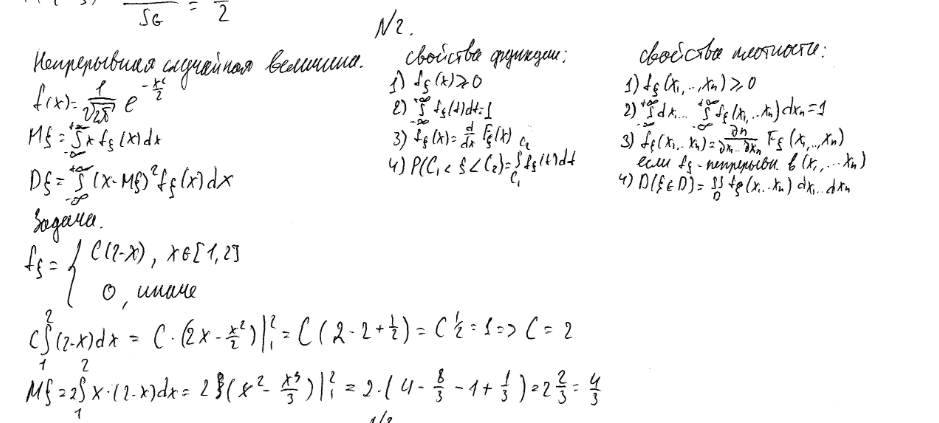 √G = /2
N2.
Непрерывная случайная величина.
f(x) = 1/√2π e^(-x²/2)
Mξ = ∫_{-∞}^{+∞} x f_ξ(x)dx
Dξ = ∫_{-∞}^{+∞} (x-Mξ)² f_ξ(x)dx
свойства функции:
1) f_ξ(x) ≥ 0
2) ∫_{-∞}^{+∞} f_ξ(t)dt = 1
3) f_ξ(x) = d/dx F_ξ(x)
4) P(C₁ < ξ < C₂) = ∫_{C₁}^{C₂} f_ξ(t)dt
свойства плотности:
1) f_ξ(x₁,..,xₙ) ≥ 0
2) ∫_{-∞}^{+∞} dx... ∫_{-∞}^{+∞} f_ξ(x₁,..xₙ)dxₙ = 1
3) f_ξ(x₁,..xₙ) = ∂n/∂x₁..∂xₙ F_ξ(x₁,..,xₙ)
если f_ξ - непрерывн в (x₁,...xₙ)
4) D(ξ∈D) = ∬_D f_ξ(x₁...xₙ) dx₁...dxₙ
Задача.
f_ξ = { C(2-x), x∈[1,2]
0, иначе
C∫_1^2 (2-x)dx = C·(2x - x²/2)|₁² = C(2-2+1/2) = C 1/2 = 1 => C = 2
Mξ = 2∫_1^2 x·(2-x)dx = 2(x² - x³/3)|₁² = 2·(4 - 8/3 - 1 + 1/3) = 2 2/3 = 4/3